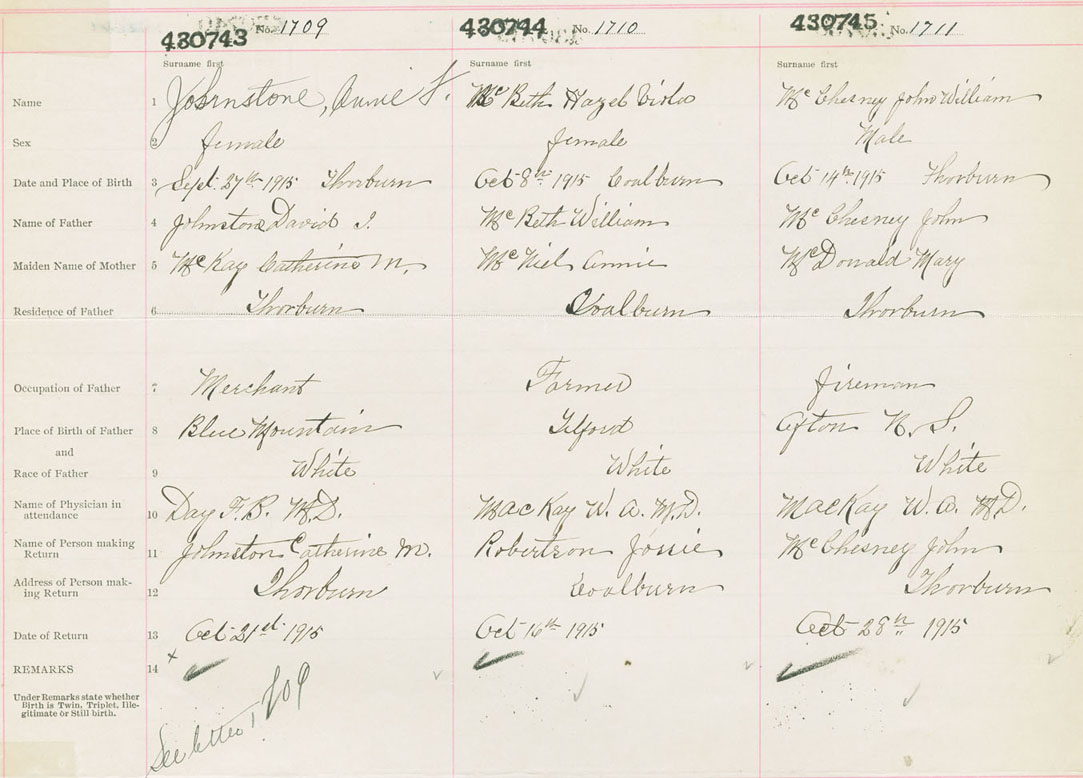 430743 No. 1709 430744 No. 1710 430745 No. 1711
Surname first Surname first Surname first
Name 1 Johnstone, Annie F. McBeth Hazel Viola McChesney John William
Sex 2 female female Male
Date and Place of Birth 3 Sept. 27th 1915 Thorburn Oct 8th 1915 Coalburn Oct 14th 1915 Thorburn
Name of Father 4 Johnstone David I. McBeth William McChesney John
Maiden Name of Mother 5 McKay Catherine M. McNiel Annie McDonald Mary
Residence of Father 6 Thorburn Coalburn Thorburn
Occupation of Father 7 Merchant Farmer fireman
Place of Birth of Father 8 Blue Mountain Telford Afton N. S.
and
Race of Father 9 White White White
Name of Physician in
attendance 10 Day F. B. M.D. MacKay W. A. M.D. MacKay W. A. M.D.
Name of Person making
Return 11 Johnston Catherine M. Robertson Jossie McChesney John
Address of Person mak-
ing Return 12 Thorburn Coalburn Thorburn
Date of Return 13 Oct 21st 1915 Oct 16th 1915 Oct 28th 1915
REMARKS 14 x
Under Remarks state whether
Birth is Twin, Triplet, Ille-
gitimate or Still birth.
See letter 1709